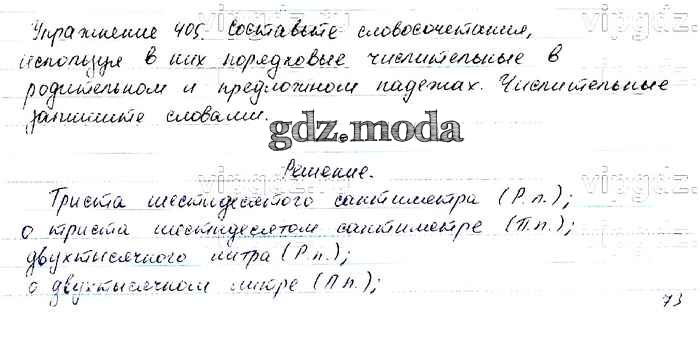 Упражнение 405. Составьте словосочетания,
используя в них порядковые числительные в
родительном и предложном падежах. Числительные
запишите словами.
gdz.moda
Решение.
Триста шестидесятого сантиметра (Р.п.);
о триста шестидесятом сантиметре (П.п.);
двухтысячного литра (Р.п.);
о двухтысячном литре (П.п.);
73